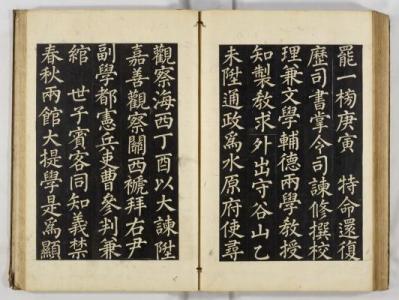 罷一榜庚寅　特命還復
歷司書掌令司諫修撰校
理兼文學輔德兩學教授
知製教求外出守谷山乙
未陞通政爲水原府使尋
觀察海西丁酉以大諫陞
嘉善觀察關西褫拜右尹
副學都憲兵吏曹參判兼
綰　世子賓客同知義禁
春秋兩館大提學是爲顯